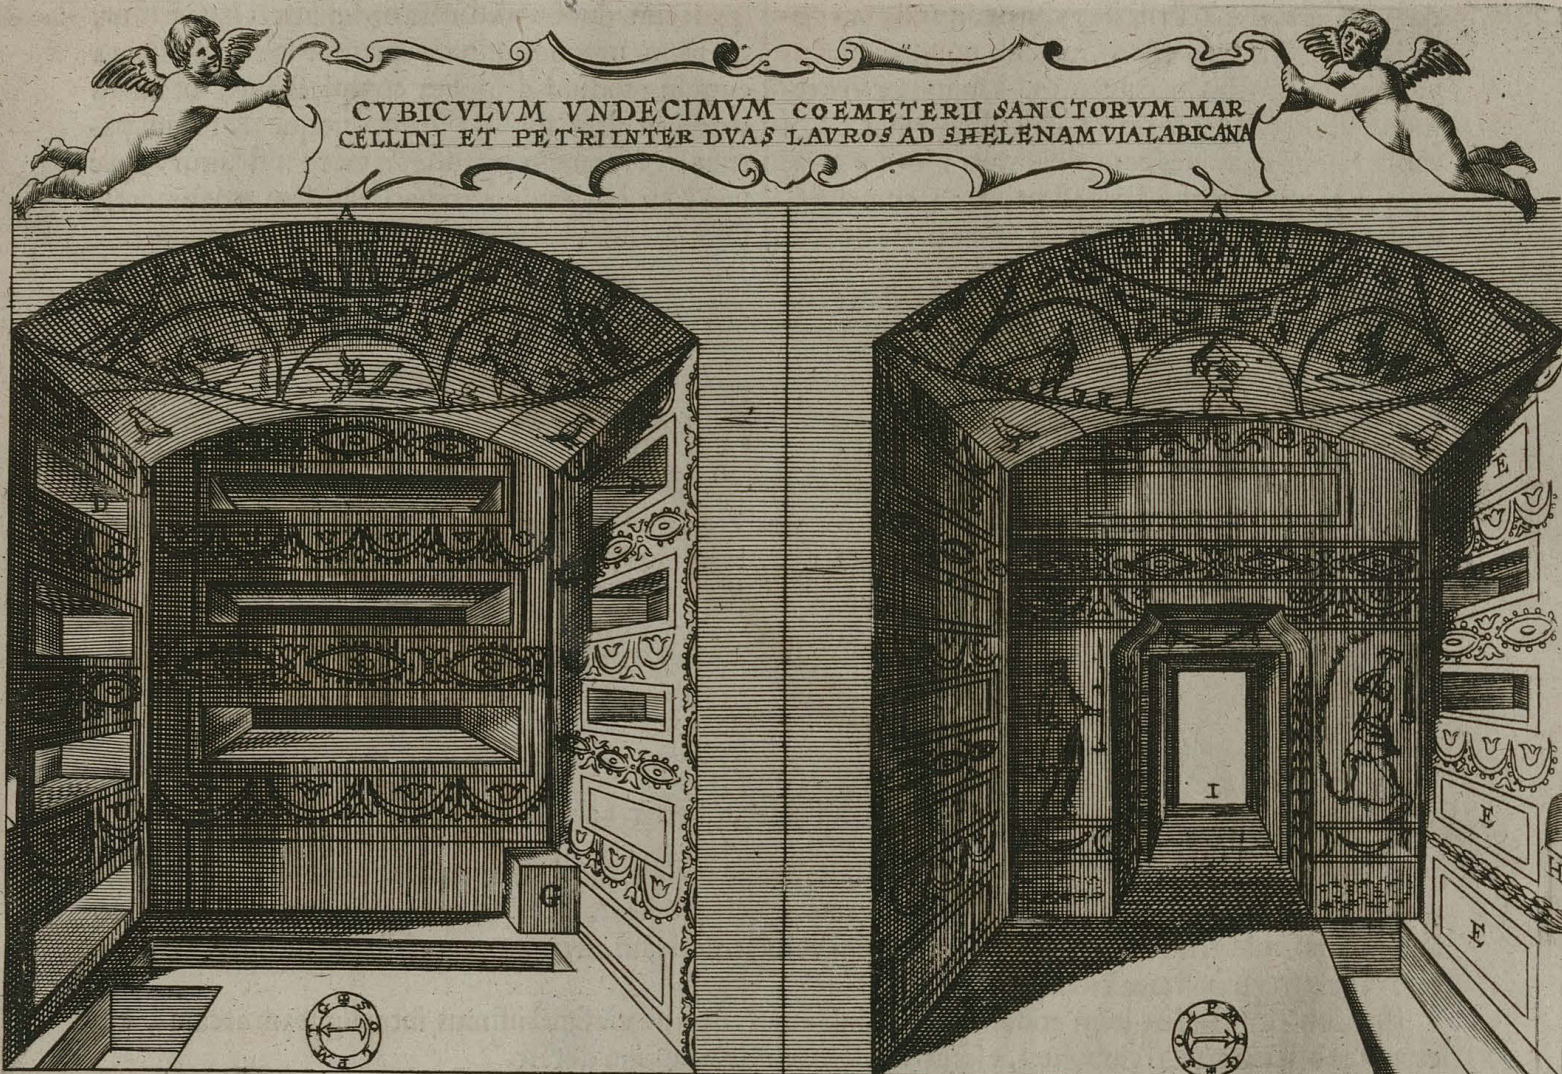 CVBICVLVM VNDECIMVM COEMETERII SANCTORVM MAR
CELLINI ET PETRI INTER DVAS LAVROS AD SHELENAM VIA LABICANA
A
A
E
I
E
H
E
G